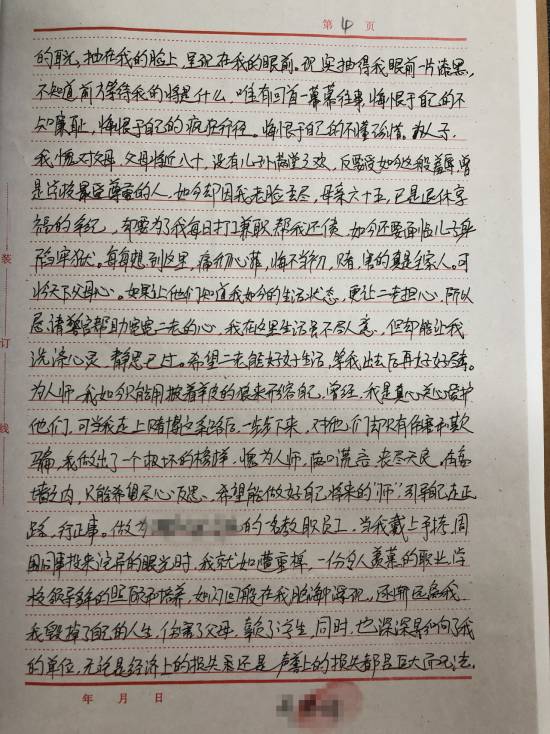 第 4 页
的耳光,抽在我的脸上,呈现在我的眼前。现实抽得我眼前一片漆黑,
不知道前方等待我的将是什么,唯有回首一幕幕往事,悔恨于自己的不
知廉耻,悔恨于自己的疯狂行径。悔恨于自己的不懂珍惜。为人子,
我愧对父母,父母将近八十,没有儿孙满堂之欢,反要受如今这般羞辱,曾
是学校最受尊重的人,如今却因我老脸丢尽,母亲六十五,已是退休享
福的年纪,却要为了我每日打工兼职,帮我还债,如今还要面临儿子身
陷牢狱。每每想到这里,痛彻心扉,悔不当初,赌,害的真是全家人。可
怜天下父母心。如果让他们知道我如今的生活状态,更让二老担心,所以
恳请警官帮助宽慰二老的心,我在这里生活虽不尽人意,但却能让我
洗涤心灵,静思己过。希望二老能好好生活,等我出去后再好好尽孝。
为人师,我如今只能用披着羊皮的狼来形容自己,曾经,我是真心关心爱护
他们,可当我走上赌博之路后,一步步下来,对他们却只有伤害和欺
骗,我做出了一个极坏的榜样,愧为人师,满口谎言,丧尽天良,在高
墙之内,只能希望尽心反思,希望能做好自己将来的“师”,引导自己走正
路,行正事。做为 的一名教职员工,当我戴上手铐,周
围同事投来诧异的眼光时,我就如遭重掉,一份令人羡慕的职业,学
校领导多年的照顾和培养,如闪回般在我脑海中浮现,还哪远忽我
我毁掉了自己的人生,伤害了父母,辜负了学生,同时,也深深影响了我
的单位,无论是经济上的损失还是声誉上的损失都是巨大而无法,
年 月 日
装
订
线